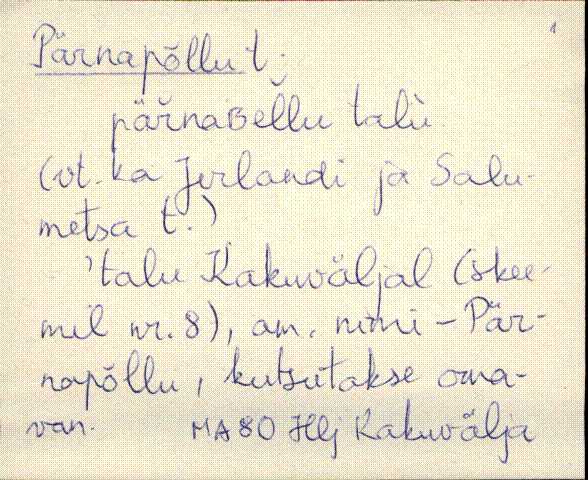 1
Pärnapõllu t.
pär̆naʙĕl̆lu talù
(vt. ka Jerlandi ja Salu-
metsa t.)
'talu Kakuväljal (skee-
mil nr. 8), am. nimi - Pär-
napõllu, kutsutakse oma-
van.  MA 80 Hlj Kakuvälja